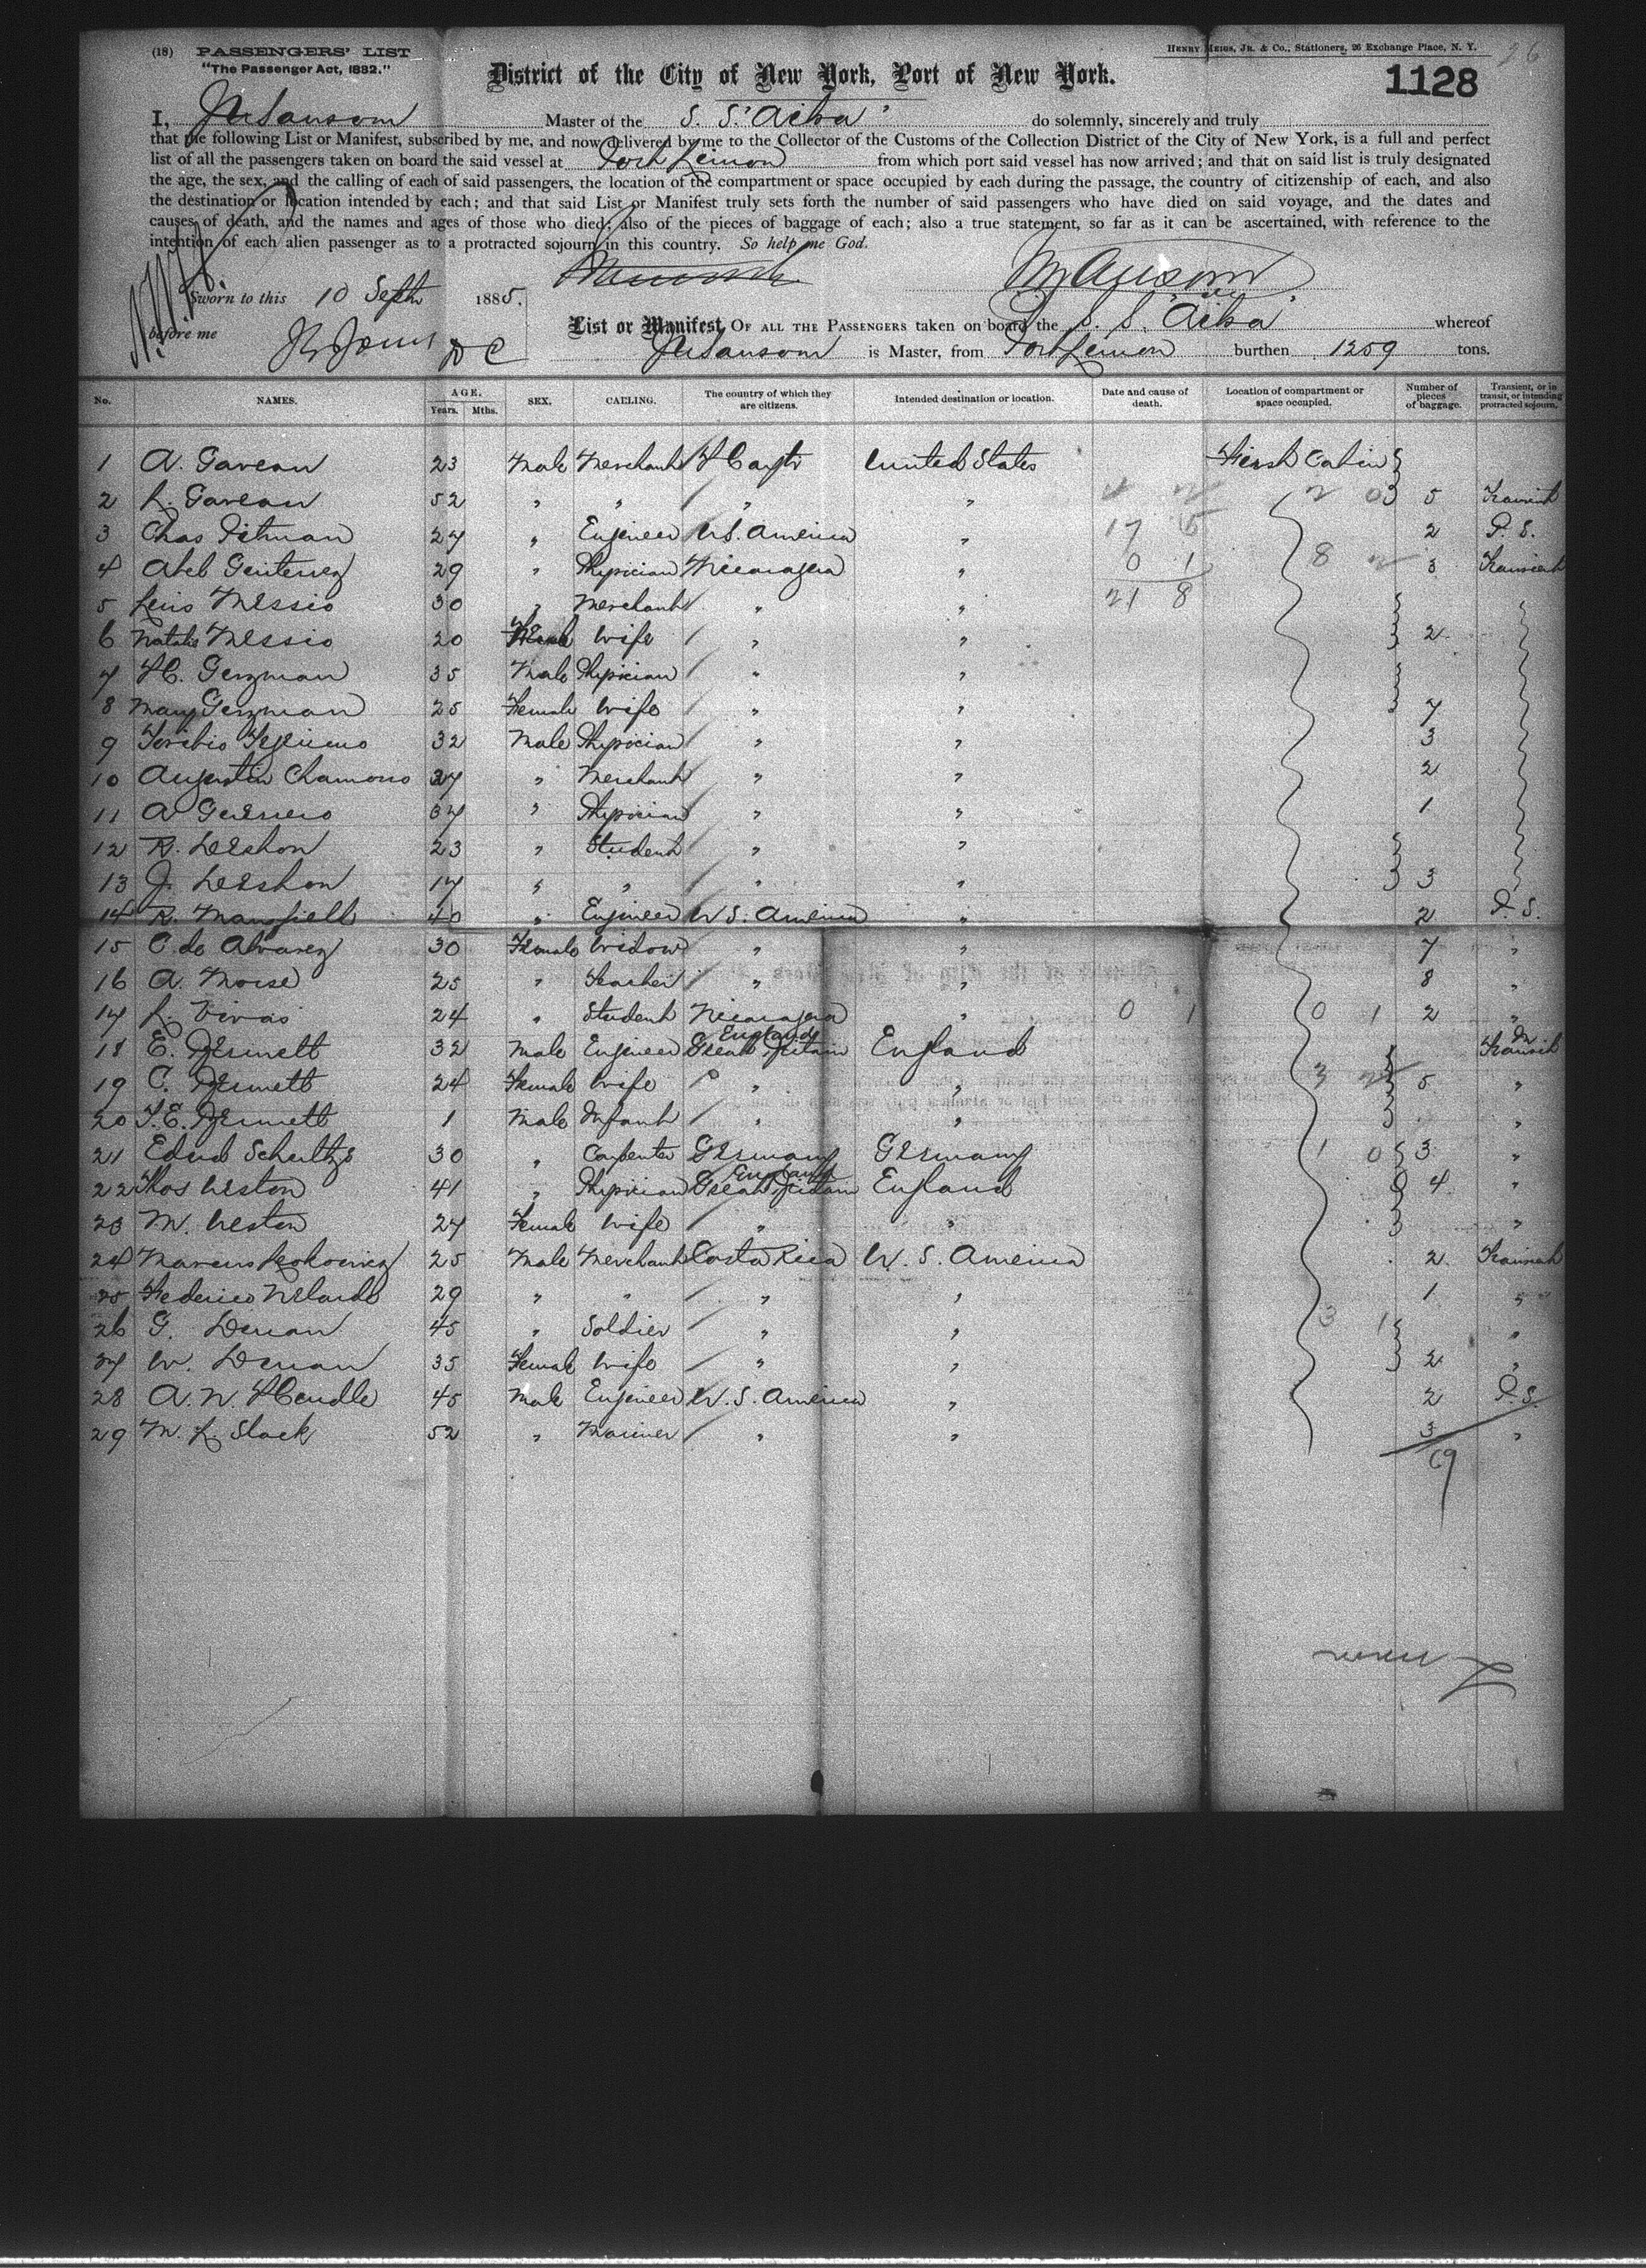 (18) PASSENGERS' LIST
"The Passenger Act, 1882."
HENRY MEIGS, JR. & CO., Stationers, 26 Exchange Place, N. Y.
26
District of the City of New York, Port of New York.
1128
I, Sansom Master of the S. S. "Ailsa" do solemnly, sincerely and truly
that the following List or Manifest, subscribed by me, and now delivered by me to the Collector of the Customs of the Collection District of the City of New York, is a full and perfect
list of all the passengers taken on board the said vessel at Port Limon from which port said vessel has now arrived; and that on said list is truly designated
the age, the sex, and the calling of each of said passengers, the location of the compartment or space occupied by each during the passage, the country of citizenship of each, and also
the destination or location intended by each; and that said List or Manifest truly sets forth the number of said passengers who have died on said voyage, and the dates and
causes of death, and the names and ages of those who died; also of the pieces of baggage of each; also a true statement, so far as it can be ascertained, with reference to the
intention of each alien passenger as to a protracted sojourn in this country. So help me God.
Sworn to this 10 Septh 1885.
Sansom
before me Jones D C
List or Manifest, OF ALL THE PASSENGERS taken on board the S. S. "Ailsa" whereof
Sansom is Master, from Port Limon burthen 1259 tons.
No. NAMES. AGE. Years. Mths. SEX. CALLING. The country of which they are citizens. Intended destination or location. Date and cause of death. Location of compartment or space occupied. Number of pieces of baggage. Transient, or in transit, or intending protracted sojourn.
1 A. Gaveau 23 Male Merchant Hayti United States First Cabin
2 L. Gaveau 52 " " " " 2 0 5 Transient
3 Chas Pitman 27 " Engineer U.S. America " 17 5 2 P. S.
4 Abel Guiterrez 29 " Physician Nicaragua " 0 1 8 2 3 Transient
5 Luis Messio 30 " Merchant " " 21 8
6 Natalie Messio 20 Wife " " 2
7 H. Guzman 35 Male Physician " "
8 Mary Guzman 25 Female Wife " " 7
9 Toribio 32 Male Physician " " 3
10 Augustin Chamorro 37 " Merchant " " 2
11 A Guerrero 37 " Physician " " 1
12 R. Deshon 23 " Student " "
13 J. Deshon 17 " " " " 3
14 R. Mansfield 40 " Engineer U S. America " 2 P. S.
15 C. de Alvarez 30 Female Widow " " 7 "
16 A. Morse 25 " Teacher " " 8 "
17 L. Vivas 24 " Student Nicaragua " 0 1 0 1 2 "
18 E. 32 Male Engineer Great Britain England England In Transit
19 C. 24 Female Wife " " 3 2 5 "
20 T. E. 1 Male Infant " " "
21 Edud Schultze 30 " Carpenter Germany Germany 1 0 3 "
22 Thos Weston 41 " Physician Great Britain England England 4 "
23 M. Weston 27 Female Wife " " "
24 Marcus 25 Male Merchant Costa Rica U. S. America 2 Transient
25 Federico Velarde 29 " " " " 1 "
26 G. Duran 45 " Soldier " " 3 1 "
27 W. Duran 35 Female Wife " " 2 "
28 A. W. Hendle 45 Male Engineer U. S. America " 2 P. S.
29 M. L. Slack 52 " Mariner " " 3 "
69